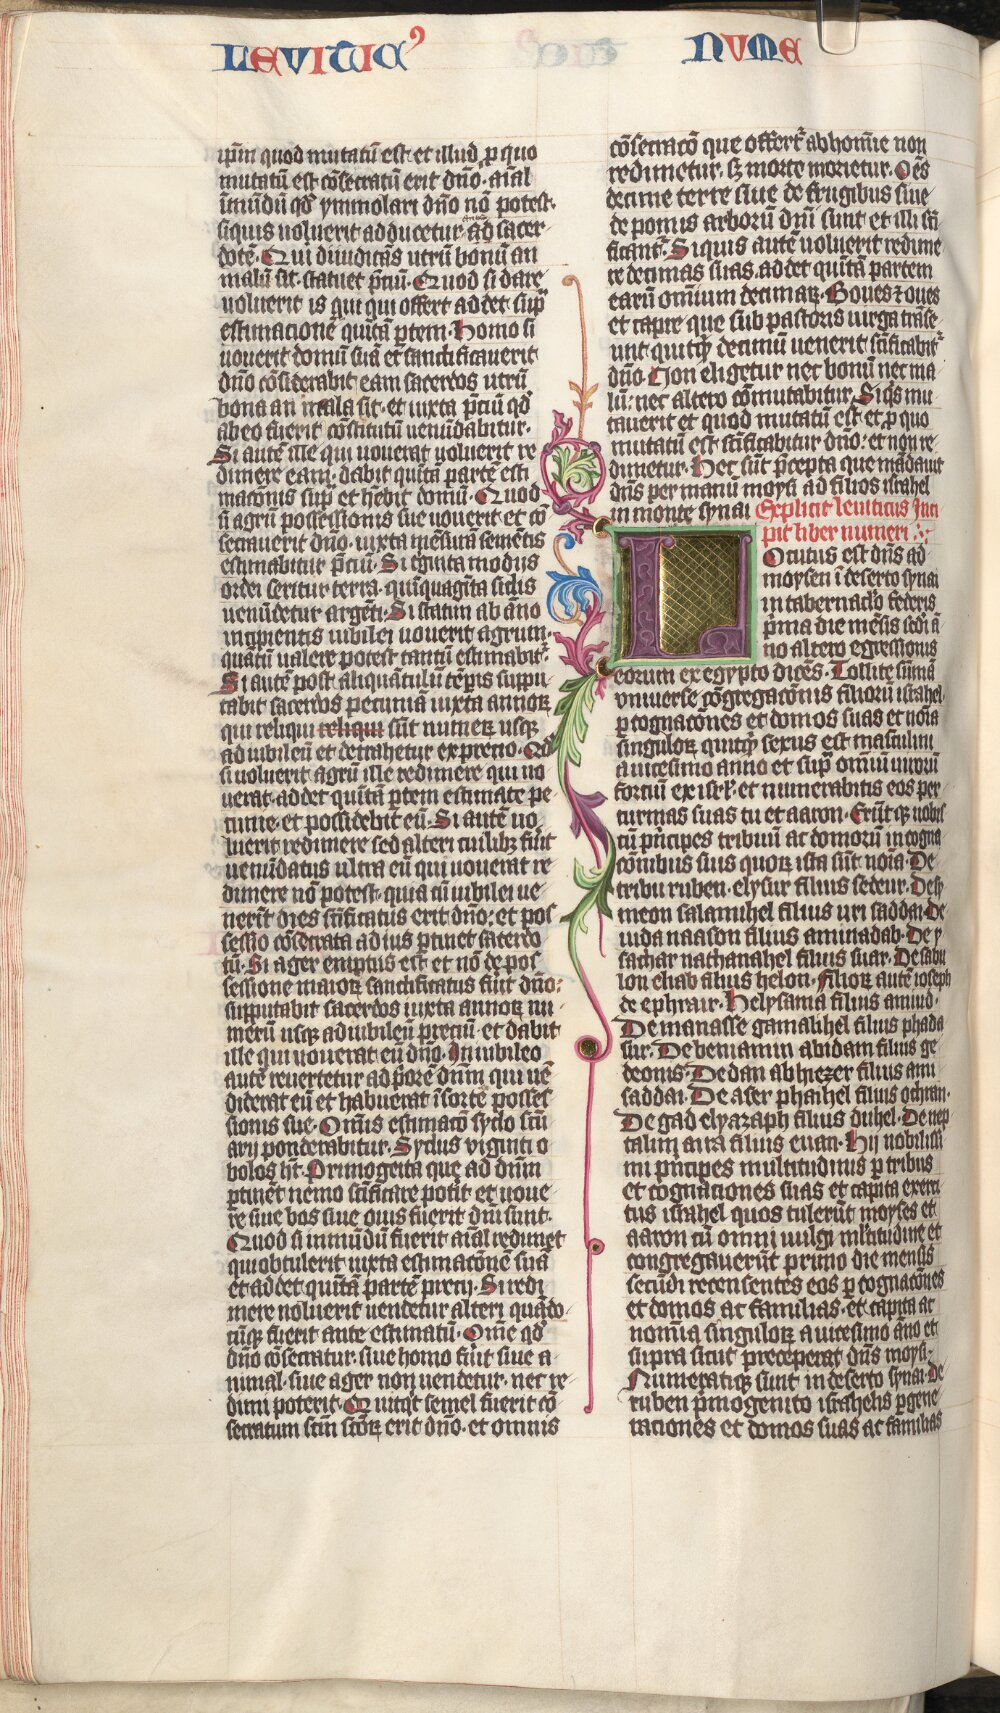 LEVITICꝰ NVME
ip̄m quod mutatū est et illud p quo
mutatū est cōsecratū erit dn̄o· aīal
īmūdū qd̄ ymmolari dn̄o nō potest·
siquis uoluerit adducetur ad sacer
dotē· Qui diiudicās utrū bonū an
malū sit· statuet p̄ciū· Quod si dare
uoluerit is qui qui offert addet sup̄
estimacionē quītā ptem· Homo si
uouerit domū suā et sanctificauerit
dn̄o cōsiderabit eam sacerdos utrū
bona an mala sit· et iuxta p̄ciū qd̄
ab eo fuerit cōstitutū uenūdabitur·
Si autē ille qui uouerat uoluerit re
dimere eam· dabit quītā partē esti
macōnis sup̄ et hēbit domū· Quod
si agrū possessionis sue uouerit et cō
secrauerit dn̄o· iuxta mēsurā semētis
estimabitur p̄ciū· Si tginta modijs
ordei seritur terra· quīquagīta siclis
uenūdetur argēti· Si statim ab āno
incipientis iubilei uouerit agrum·
quātū ualere potest tantū estimabit᷑·
Si autē post aliquātulū tēpis suppu
tabit sacerdos pecuniā iuxta annoꝝ
qui reliqui reliqui sūt nūmeꝝ usqꝫ
ad iubileū et detrahetur ex precio· Qd̄
si uoluerit agrū ille redimere qui uo
uerat· addet quītā ptem estimate pe
cunie· et possidebit eū· Si autē uo
luerit redimere sed alteri cuilibꝫ fūit
uenūdatus ultra eū qui uouerat re
dimere nō potest· quia cū iubilei ue
nerīt dies sc̄ificatus erit dn̄o· et pos
sessio cōsecrata ad ius ptinet sacerdo
tū· Si ager emptus est et nō de pos
sessione maioꝝ sanctificatus fūit dn̄o·
supputabit sacerdos iuxta annoꝝ nu
merū usqꝫ ad iubileū preciū· et dabit
ille qui uouerat eū dn̄o· In iubileo
autē reuertetur ad p̄orē dn̄m qui uē
diderat eū et habuerat ī sortē posses
sionis sue· Omnis estimacō syclo scū
arij ponderabitur· Syclus viginti o
bolos ht̄· Primogeita que ad dn̄m
ptinēt nemo sc̄ificare potit et uoue
re siue bos siue ouis fuerit dn̄i sunt·
Quod si inmūdū fuerit aīal redimet
qui obtulerit iuxta estimacōnē suā
et addet quītā partē precij· Si redi
mere noluerit uendetur alteri quāto
cūqꝫ fuerit ante estimatū· Om̄e qd̄
dn̄o cōsecratur· siue homo fūit siue a
nimal· siue ager non uendetur· nec re
dimi poterit· Quitqt semel fuerit cō
secratum scm̄ scōꝝ erit dn̄o· et omnis
cōsecracō que offert᷑ ab homīe non
redimetur· sꝫ morte morietur· Oēs
decime terre siue de frugibus siue
de pomis arborū dn̄i sunt et illi sc̄i
ficant᷑· Si quis autē uoluerit redime
re decimas suas· addet quītā partem
earū omnium decimaꝝ· Boues ⁊ oues
et capre· que sub pastoris uirga trāse
unt quitqͥd decimū uenerit sc̄ificabit᷑
dn̄o· Non eligetur nec bonū nec ma
lū· nec altero cōmutabitur· Siqͥs mu
tauerit et quod mutatū est· et p quo
mutatū est sc̄ificabitur dn̄o· et non re
dimetur· Hec sūt p̄cepta que mādauit
dn̄s per manū moysi ad filios israhel
in monte synai Explicit leuiticus Inci
pit liber numeri
LOcutus est dn̄s ad
moysen ī deserto synai
in tabernac̄lo federis
p̄ma die mēsis secdi ā
no altero egressionis
eorum ex egypto dicēs· Tollite sūmā
vniuerse cōgregacōnis filiorū israhel
p cognacōnes et domos suas et noīa
singuloꝝ quitqͥd sexus est masculini
a uicesimo anno et sup̄ omniū uirorū
fortiū ex isrl̄· et numerabitis eos per
turmas suas tu et aaron· Erūtqꝫ uobis
cū p̄ncipes tribuū ac domorū in cogna
cōnibus suis quoꝝ ista sūt noīa· De
tribu ruben· elysur filius sedeur· De sy
meon salamihel filius uri saddai· De
iuda naason filius aminadab· De y
sachar nathanahel filius suar· De zabu
lon eliab filius helon· Filioꝝ autē ioseph
de ephraīr· Helysama filius amiud·
De manasse gamalihel filius phada
sur· De beniamin abidam filius ge
deonis· De dan ab hiezer filius ami
saddai· De aser phaihel filius ochran·
De gad elyazaph filius duhel· De nep
talim aira filius enan· Hij nobilissi
mi p̄ncipes multitudinis p tribus
et cognaciones suas et capita exerci
tus israhel quos tulerūt moyses et
aaron cū omni uulgi ml̄titudine et
congregauerūt primo die mensis
secūdi recensentes eos p cognacōnes
et domos ac familias· et capita ac
nomīa singuloꝝ a uicesimo āno et
supra sicut preceperat dn̄s moysi·
Numeratiqꝫ sunt in deserto synai· De
ruben p̄mogenito israhelis p gene
raciones et domos suas ac familias